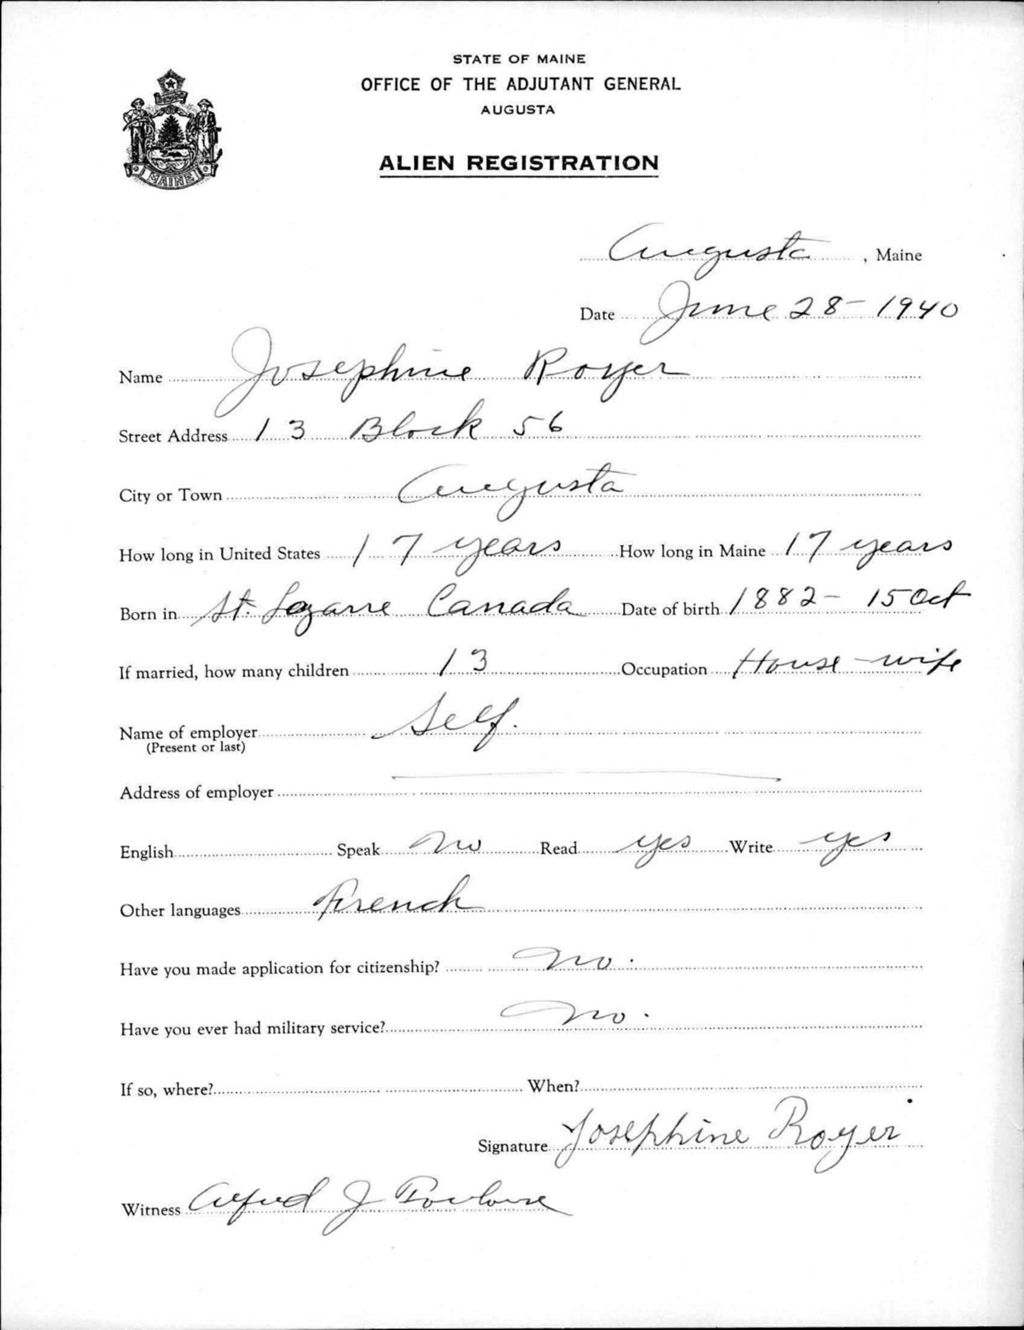 STATE OF MAINE
OFFICE OF THE ADJUTANT GENERAL
AUGUSTA
ALIEN REGISTRATION
MAINE
Augusta, Maine
Date June 28-1940
Name Josephine Royer
Street Address 13 Block 56
City or Town Augusta
How long in United States 17 years How long in Maine 17 years
Born in St. Lazarre Canada Date of birth 1882-15 Oct
If married, how many children 13 Occupation House-wife
Name of employer Self.
(Present or last)
Address of employer
English Speak No Read yes Write yes
Other languages French
Have you made application for citizenship? No.
Have you ever had military service? No.
If so, where? When?
Signature Josephine Royer
Witness Alfred J